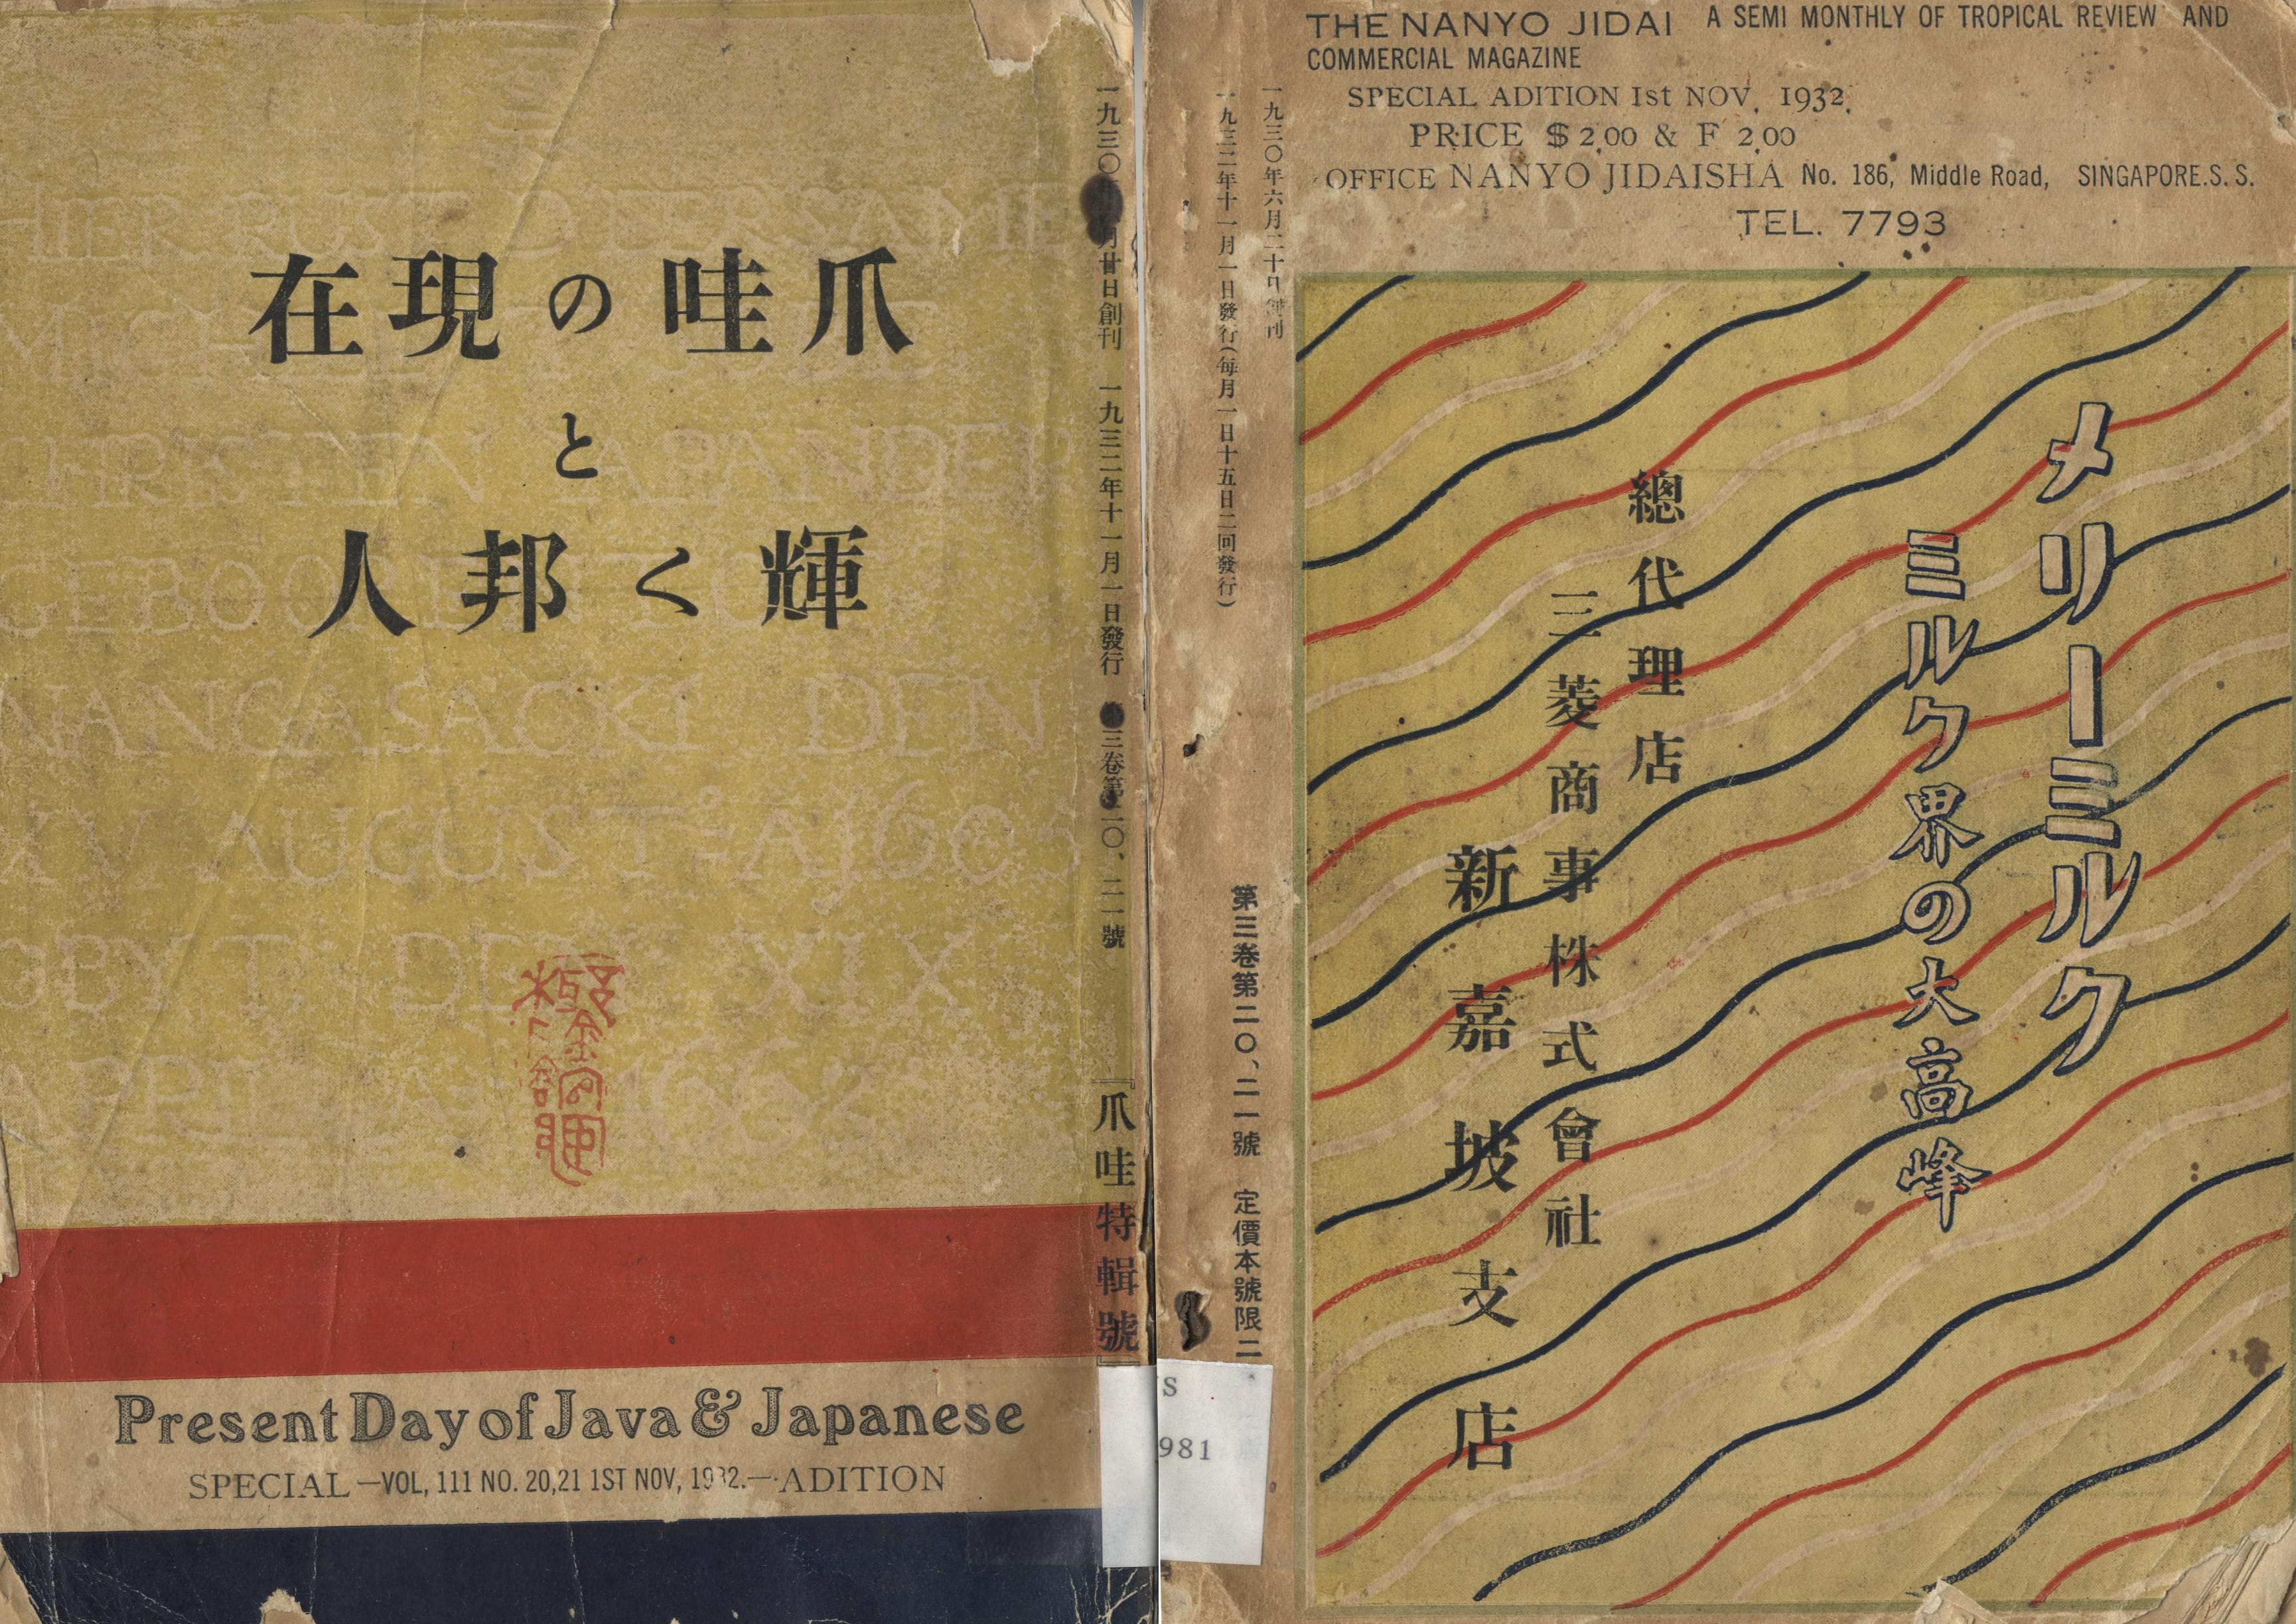 爪哇の現在
と
輝く邦人
HIER RUST
CHRISTEN JAPANDER
GEBOOREN TOT
NANGASACKI DEN
AUGUST
XIX
APRIL
Present Day of Java & Japanese
SPECIAL —VOL, 111 NO. 20,21 1ST NOV, 1932.— ADITION
一九三〇年六月廿日創刊 一九三二年十一月一日發行 第三卷第二〇、二一號 『爪哇特輯號』
981
一九三〇年六月二十日創刊
一九三二年十一月一日發行(每月一日十五日二回發行)
第三卷第二〇、二一號 定價本號限二
THE NANYO JIDAI A SEMI MONTHLY OF TROPICAL REVIEW AND
COMMERCIAL MAGAZINE
SPECIAL ADITION 1st NOV, 1932.
PRICE $ 2.00 & F 2.00
OFFICE NANYO JIDAISHA No. 186, Middle Road, SINGAPORE.S.S.
TEL. 7793
メリーミルク
ミルク界の大高峰
總代理店
三菱商事株式會社
新嘉坡支店